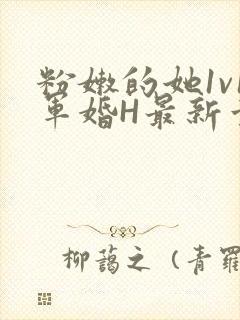 粉嫩的她1v1
军婚H最新
柳蔼之（青罗